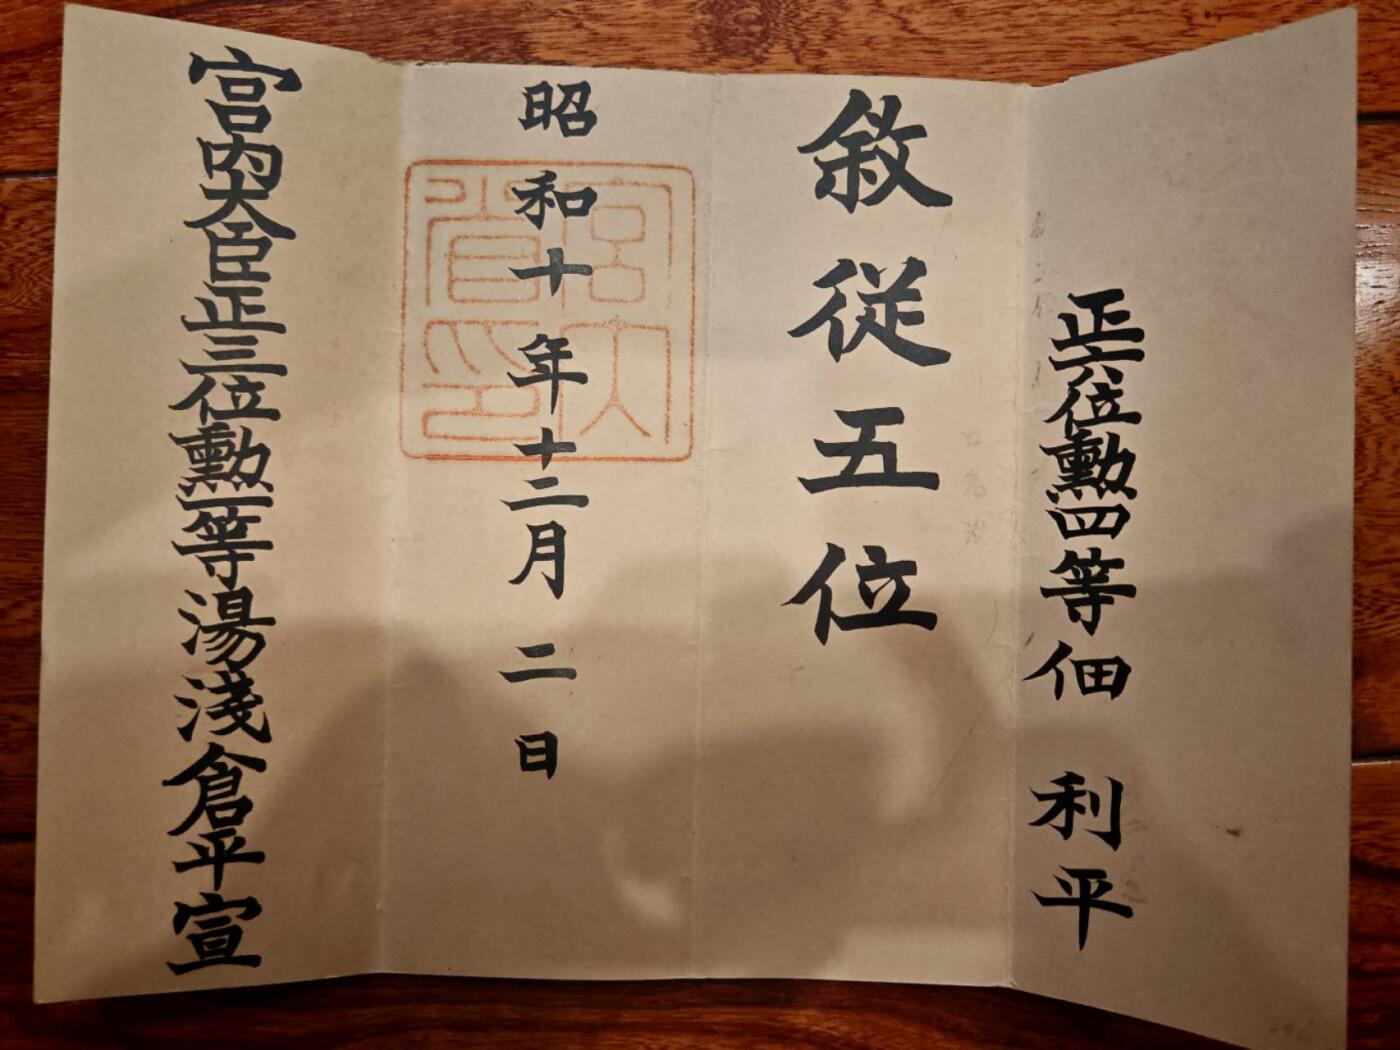 正六位勲四等佃 利平
敘従五位
昭和十年十二月二日
宮内大臣正三位勲一等湯淺倉平宣
宮内省印